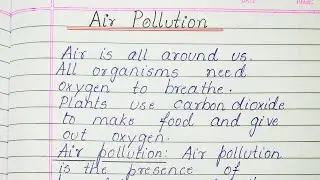 DATE
Air Pollution
Air is all around us.
All organisms need
oxygen to breathe.
Plants use carbondioxide
to make food and give
out oxygen.
Air pollution: Air pollution
is the presence of